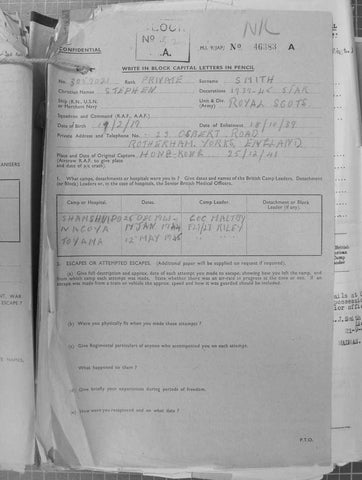 NR
BLOCK
No
A.
CONFIDENTIAL
M.I. 9/JAP/ No 46383 A
WRITE IN BLOCK CAPITAL LETTERS IN PENCIL
No. 3057021 Rank PRIVATE Surname SMITH
Christian Names STEPHEN Decorations 1939-45 STAR
Ship (R.N., U.S.N. or Merchant Navy) Unit & Div. (Army) ROYAL SCOTS.
Squadron and Command (R.A.F., A.A.F.)
Date of Birth 19/2/17 Date of Enlistment 18/10/39
Private Address and Telephone No. 23 OSBERT ROAD
ROTHERHAM. YORKS, ENGLAND
Place and Date of Original Capture HONG-KONG 25/12/41
(Aircrew R.A.F. to give place
and date of air crash)
1. What camps, detachments or hospitals were you in? Give dates and names of the British Camp Leaders, Detachment
(or Block) Leaders or, in the case of hospitals, the Senior British Medical Officers.
Camp or Hospital. Date. Camp Leader. Detachment or Block Leader (if any).
SHAMSHUIPO 25 DEC MALTBY
NAGOYA JAN RILEY
TOYAMA MAY " "
2. ESCAPES OR ATTEMPTED ESCAPES. (Additional paper will be supplied on request if required).
(a) Give full description and approx. date of each attempt you made to escape, showing how you left the camp, and
from which camp each attempt was made. State whether there was an air-raid in progress at the time or not. If an
escape was made from a train or vehicle the approx. speed and how it was guarded should be included.
(b) Were you physically fit when you made these attempts?
(c) Give Regimental particulars of anyone who accompanied you on each attempt.
What happened to them?
(d) Give briefly your experiences during periods of freedom.
(e) How were you recaptured and on what date?
P.T.O.